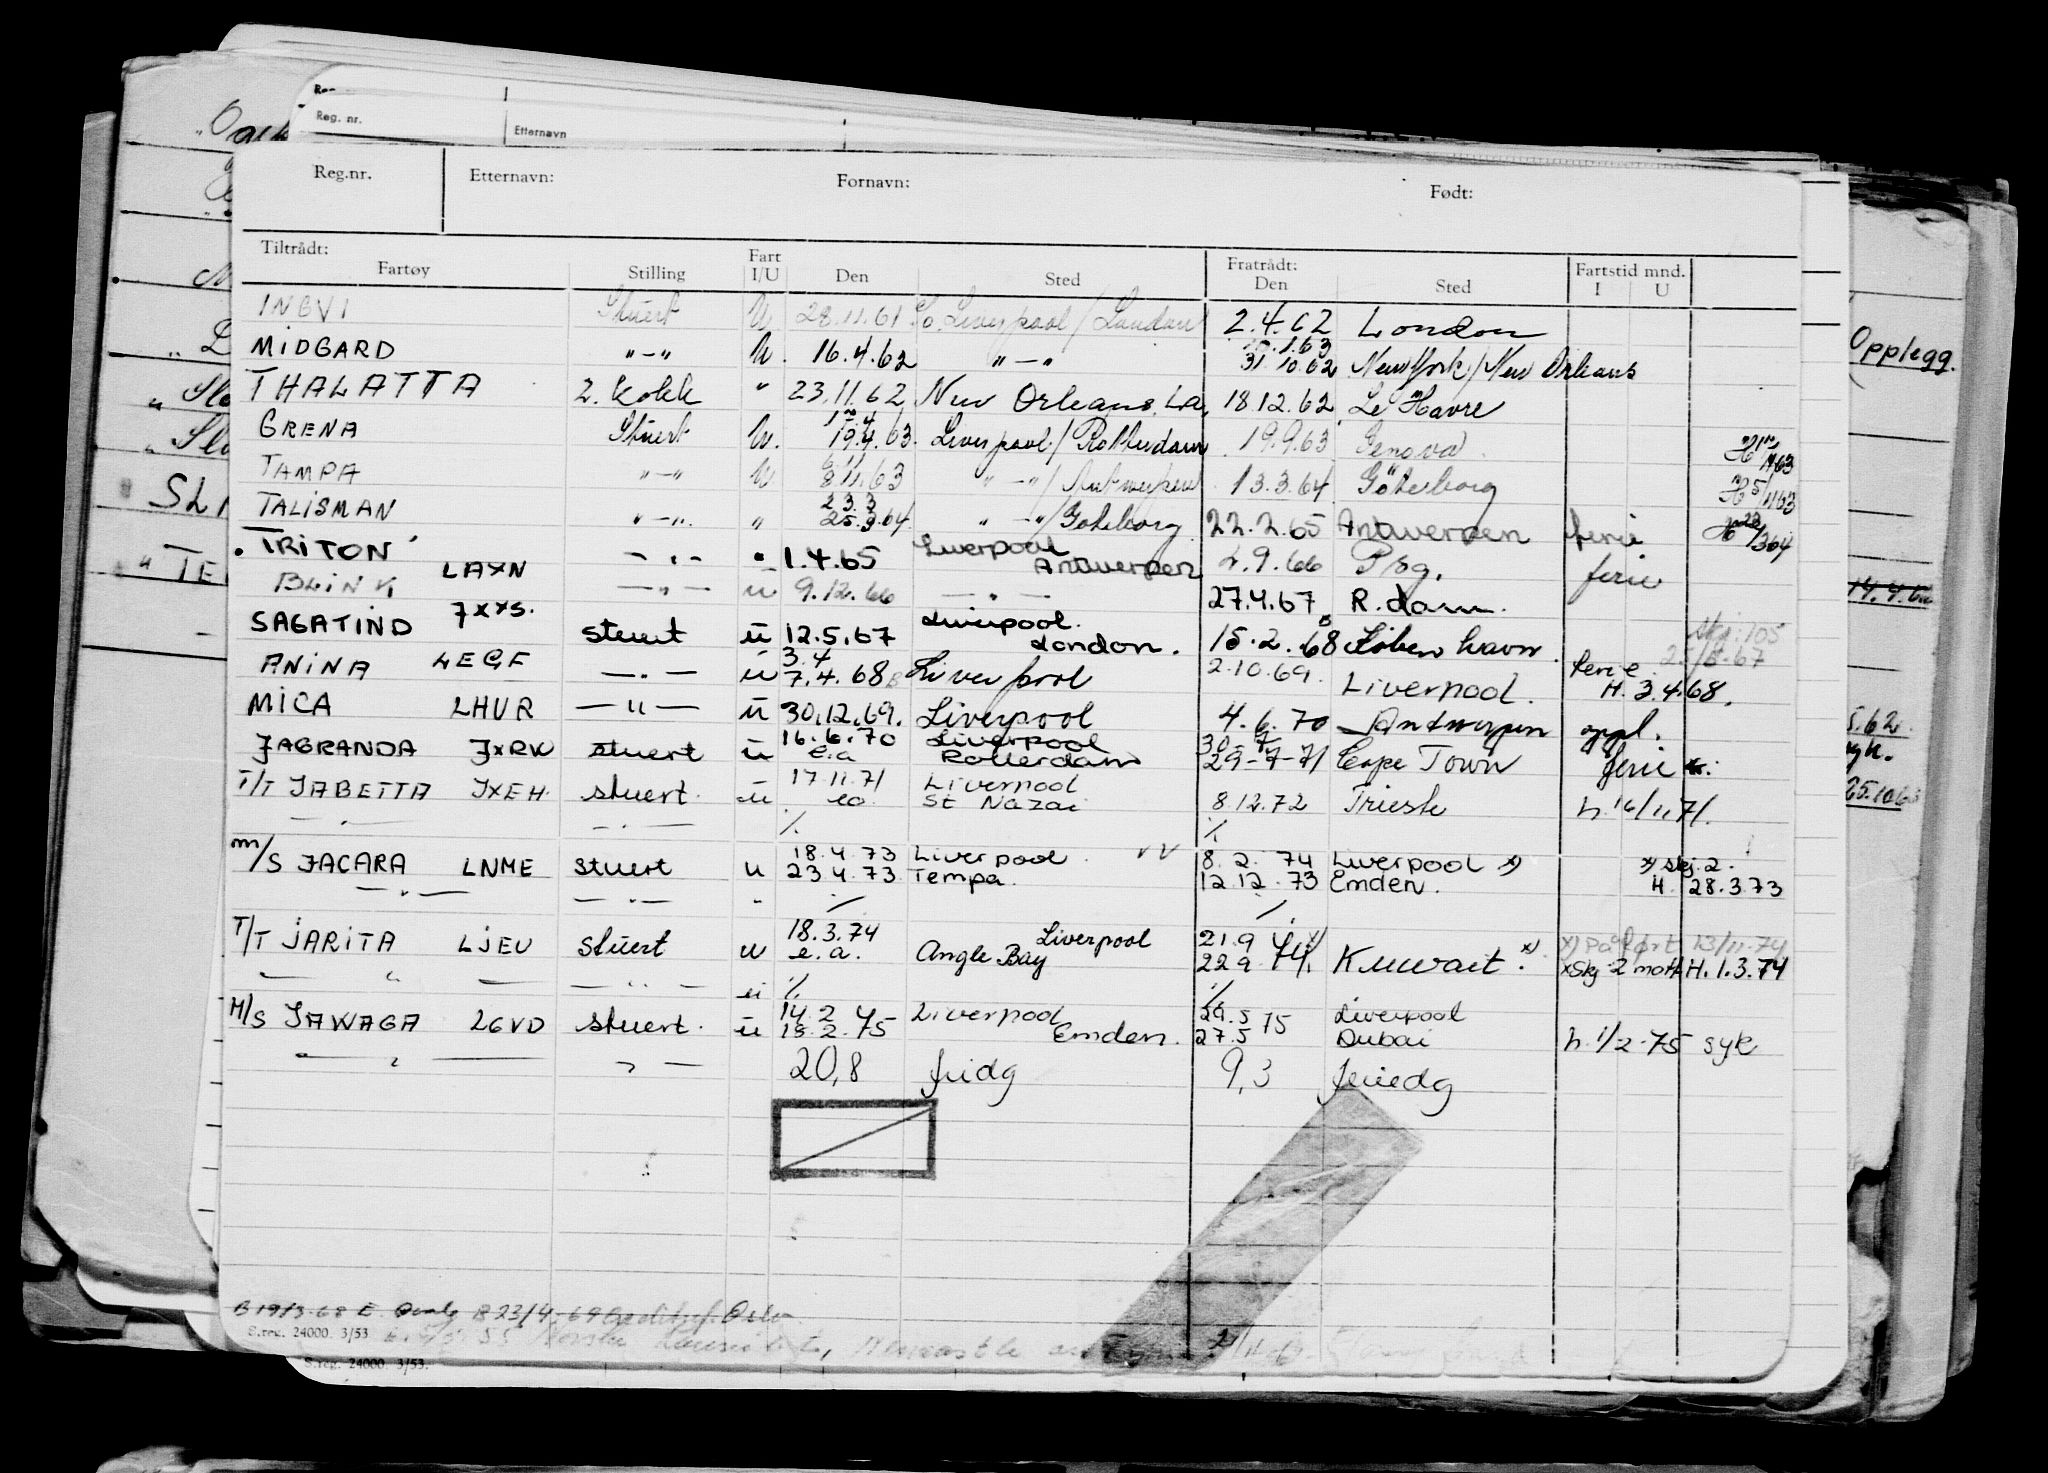 Opplegg.
Reg. nr. Etternavn
Reg.nr. Etternavn: Fornavn: Født:
Tiltrådt: Fartøy Stilling Fart I/U Den Sted Fratrådt: Den Sted Fartstid mnd. I U
INGVI Stuert U 28.11.61 Liverpool / London 2.4.62 London
MIDGARD "—" U. 16.4.62 "—" 31.10.62 New York / New Orleans
THALATTA 2. kokk " 23.11.62 New Orleans, La. 18.12.62 Le Havre
GRENA Stuert U. 19.4.63. Liverpool / Rotterdam 19.9.63 Genova.
TAMPA "—" U 6.11 8.11.63 "—" / Antwerpen 13.3.64 Göteborg H 5/11 63
TALISMAN "—" " 23.3 25.3.64 "—" / Göteborg 22.2.65 Antwerpen ferie
TRITON LAXN —"— " 1.4.65 Liverpool Antwerpen 2.9.66 ferie
BLINK —"— ü 9.12.66 —"— 27.4.67 R.dam.
SAGATIND JXXS. stuert ü 12.5.67 Liverpool. London. 15.2.68 København. skj: 105
ANINA LEGF —"— ü 3.4 7.4.68 Liverpool 2.10.69. Liverpool. ferie H. 3.4.68.
MICA LHUR —"— ü 30.12.69. Liverpool 4.6.70 Antwerpen oppl.
JAGRANDA JXRW stuert ü 16.6.70 e.a Liverpool Rotterdam 29-7-71 Cape Town ferie
T/T JABETTA JXEH. stuert. ü 17.11.71 eo. Liverpool St Nazai 8.12.72 Trieste h. 16/11.71.
—"— —"— %. %.
M/S JACARA LNME stuert u 18.4.73 23.4.73 Liverpool. Tempa. 8.2.74 12.12.73 Liverpool x) Emden. x) skj.2. H. 28.3.73
—"— —"— "
T/T JARITA LJEU stuert u 18.3.74 e.a. Liverpool Angle Bay 21.9 22.9 74. Kuwait. x) x) Påført 13/11-74 xSkj 2 mott H. 1.3.74
—"— —"— ü %. %.
M/S JAWAGA LGVD stuert. ü 14.2 18.2.75 Liverpool Emden. 29.5 27.5 75 Liverpool Dubai h. 1/2-75 syk
—"— —"— 20,8 fridg 9,3 feriedg
S.reg. 24000. 3/53
S.reg. 24000. 3/53.